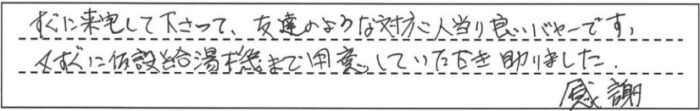 すぐに来宅して下さって、友達のような対応に人当り良いバヤーです。
すぐに仮設給湯機まで用意していただき助りました.
感謝